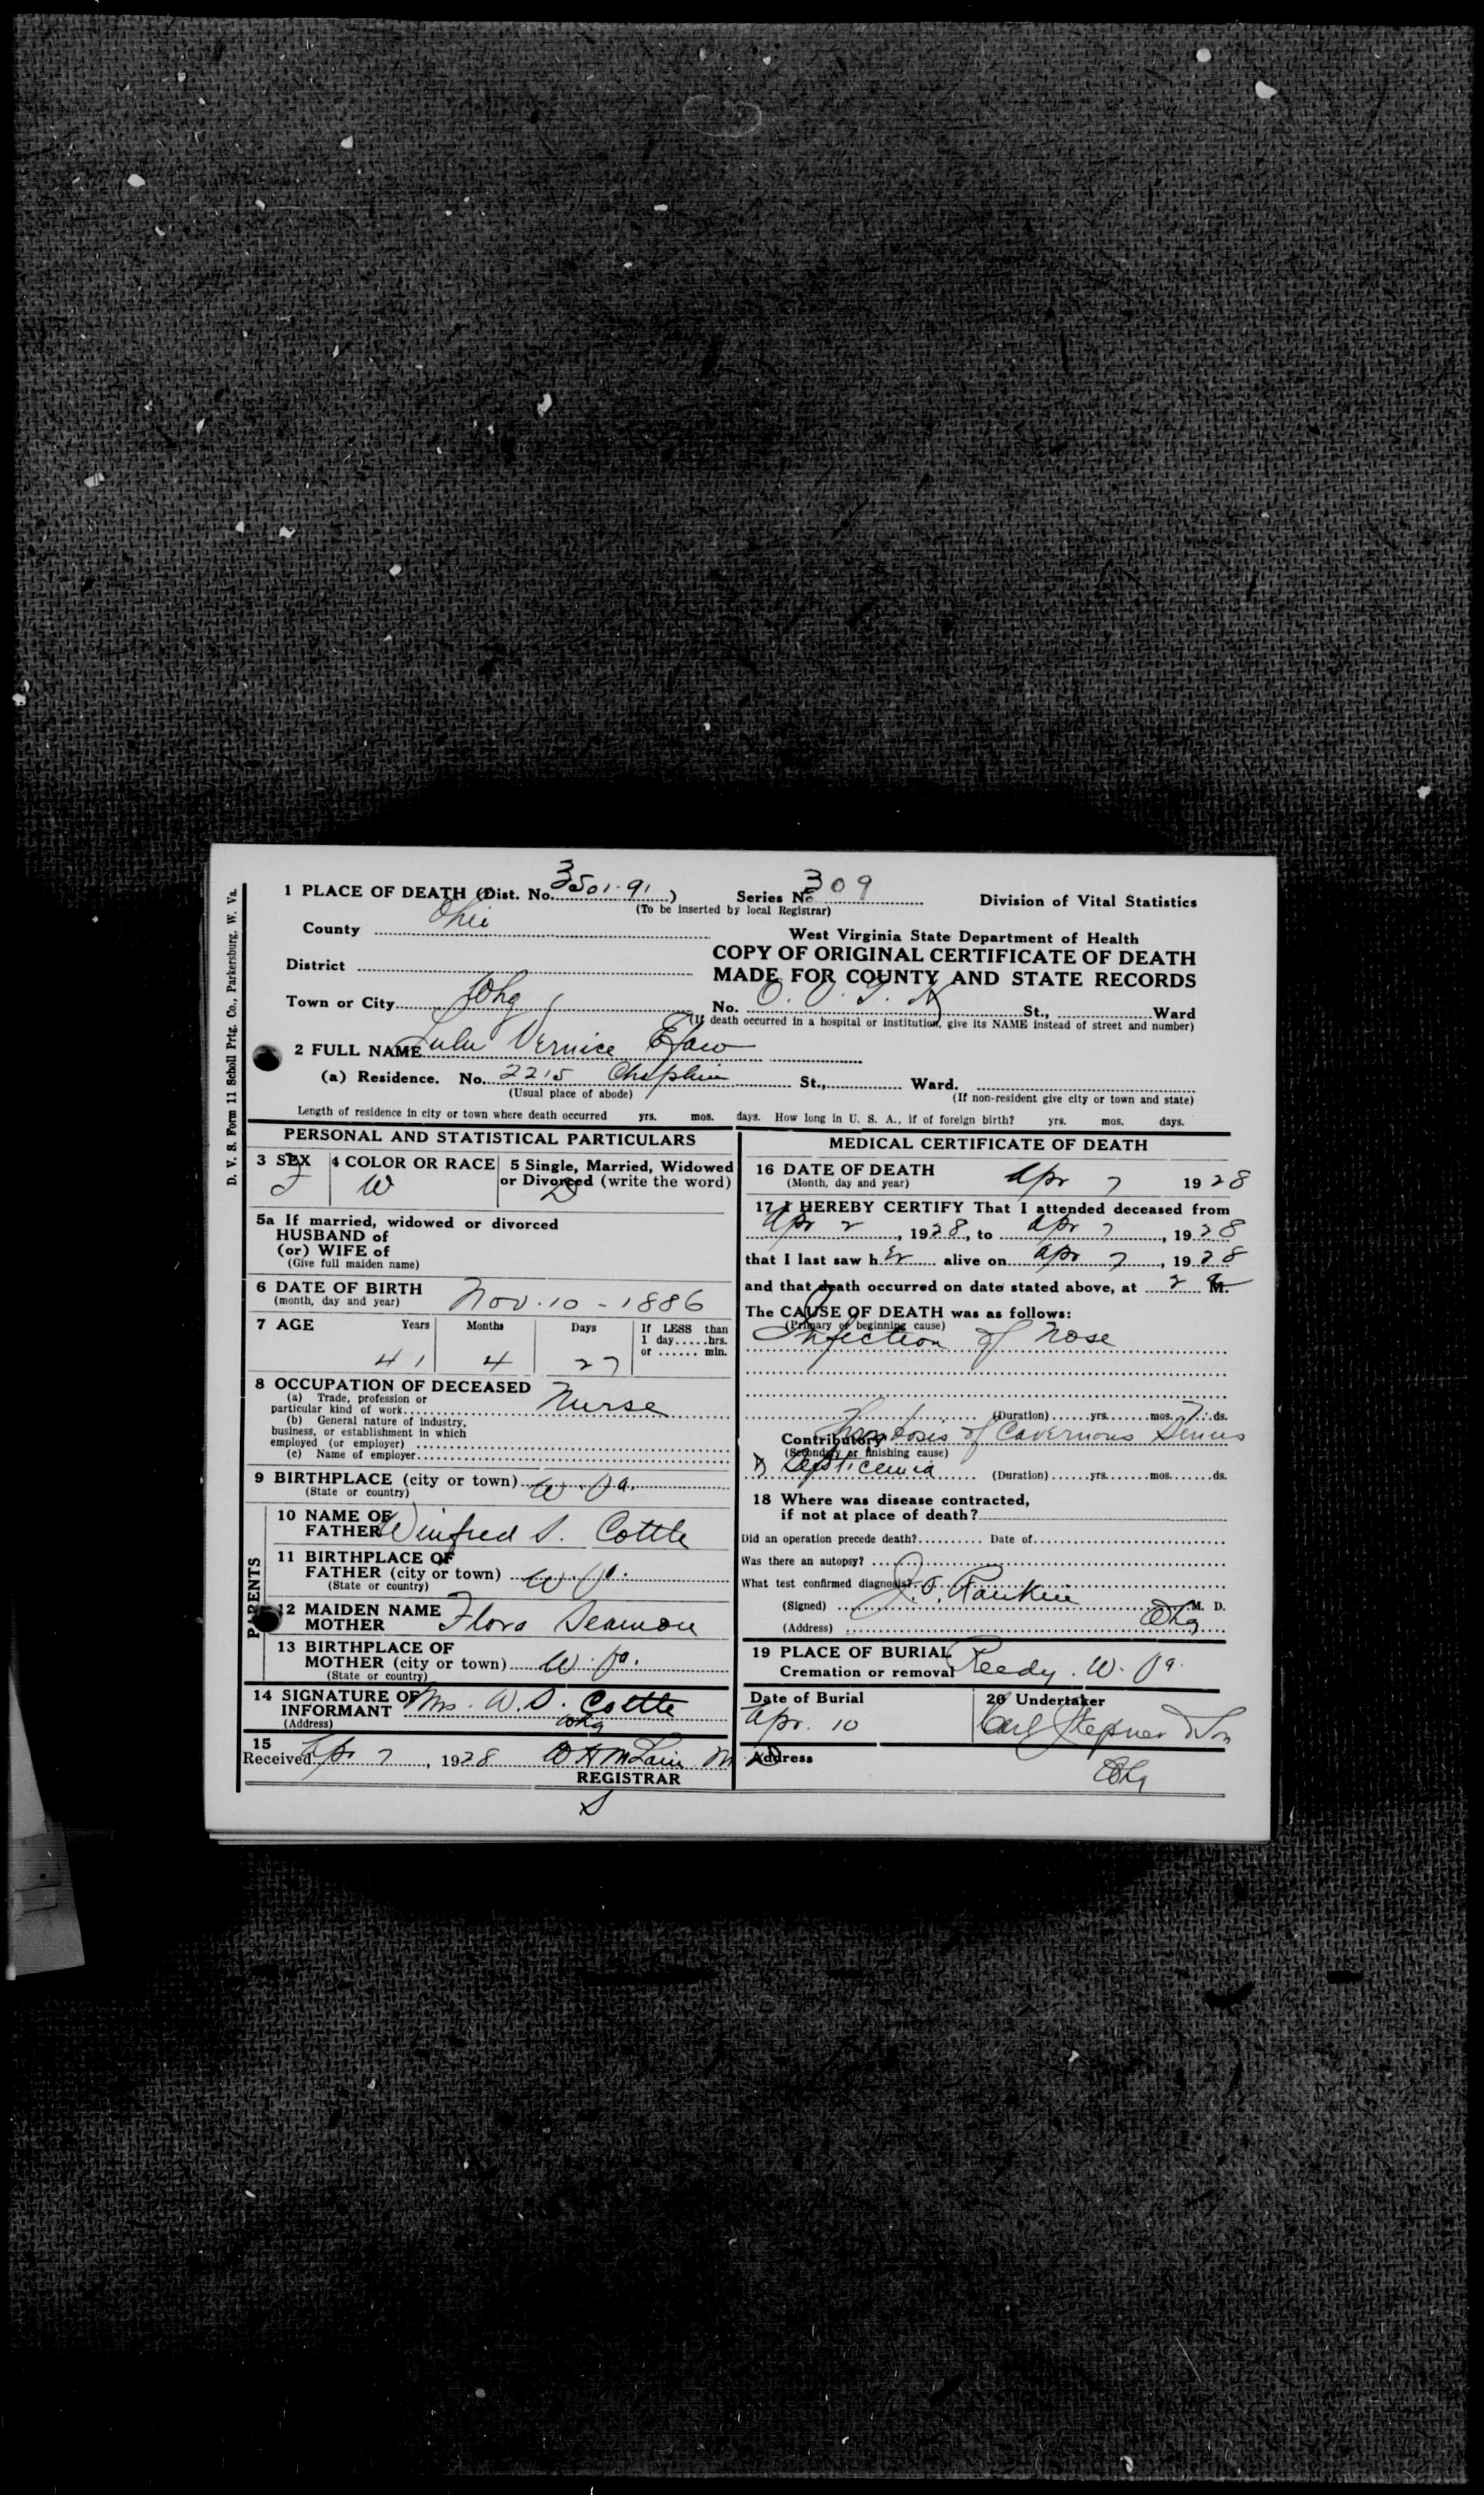 D. V. S. Form 11 Scholl Prtg. Co., Parkersburg, W. Va.
1 PLACE OF DEATH (Dist. No. 3501-91)
Series No 309
(To be inserted by local Registrar)
Division of Vital Statistics
County Ohio
West Virginia State Department of Health
COPY OF ORIGINAL CERTIFICATE OF DEATH
MADE FOR COUNTY AND STATE RECORDS
District
Town or City Whg
No. O. V. G. H St., Ward
(If death occurred in a hospital or institution, give its NAME instead of street and number)
2 FULL NAME Lulu Vernice Efaw
(a) Residence. No. 2215 Chapline St., Ward.
(Usual place of abode)
(If non-resident give city or town and state)
Length of residence in city or town where death occurred yrs. mos. days. How long in U. S. A., if of foreign birth? yrs. mos. days.
PERSONAL AND STATISTICAL PARTICULARS
3 SEX F
4 COLOR OR RACE W
5 Single, Married, Widowed
or Divorced (write the word)
D
5a If married, widowed or divorced
HUSBAND of
(or) WIFE of
(Give full maiden name)
6 DATE OF BIRTH Nov. 10 - 1886
(month, day and year)
7 AGE Years Months Days
41 4 27
If LESS than
1 day.....hrs.
or ...... min.
8 OCCUPATION OF DECEASED
(a) Trade, profession or
particular kind of work Nurse
(b) General nature of industry,
business, or establishment in which
employed (or employer)
(c) Name of employer
9 BIRTHPLACE (city or town) W. Va.
(State or country)
PARENTS
10 NAME OF
FATHER Winfred S. Cottle
11 BIRTHPLACE OF
FATHER (city or town) W. Va.
(State or country)
12 MAIDEN NAME
MOTHER Flora Seamon
13 BIRTHPLACE OF
MOTHER (city or town) W. Va.
(State or country)
14 SIGNATURE OF
INFORMANT Mrs. W. S. Cottle
(Address) Whg
15
Received Apr 7, 1928 W H McLain M D
REGISTRAR
S
MEDICAL CERTIFICATE OF DEATH
16 DATE OF DEATH Apr 7 1928
(Month, day and year)
17 I HEREBY CERTIFY That I attended deceased from
Apr 2, 1928, to Apr 7, 1928
that I last saw her alive on Apr 7, 1928
and that death occurred on date stated above, at 2 M.
The CAUSE OF DEATH was as follows:
(Primary or beginning cause)
Infection of nose
(Duration) yrs. mos. 7 ds.
Contributory Thrombosis of Cavernous Sinus
(Secondary or finishing cause)
& Septicemia (Duration) yrs. mos. ds.
18 Where was disease contracted,
if not at place of death?
Did an operation precede death? Date of
Was there an autopsy?
What test confirmed diagnosis?
(Signed) J. O. Rankin M. D.
(Address) Whg
19 PLACE OF BURIAL
Cremation or removal Reedy. W. Va.
Date of Burial
Apr. 10
20 Undertaker
Carl Hepner & Son
Address
Whg